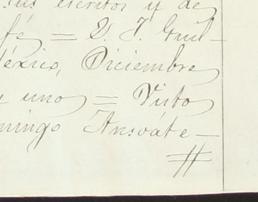 sus escritos y de
fé = D. J. Guil-
México, Diciembre
y uno = Visto
mingo Ansoáte-